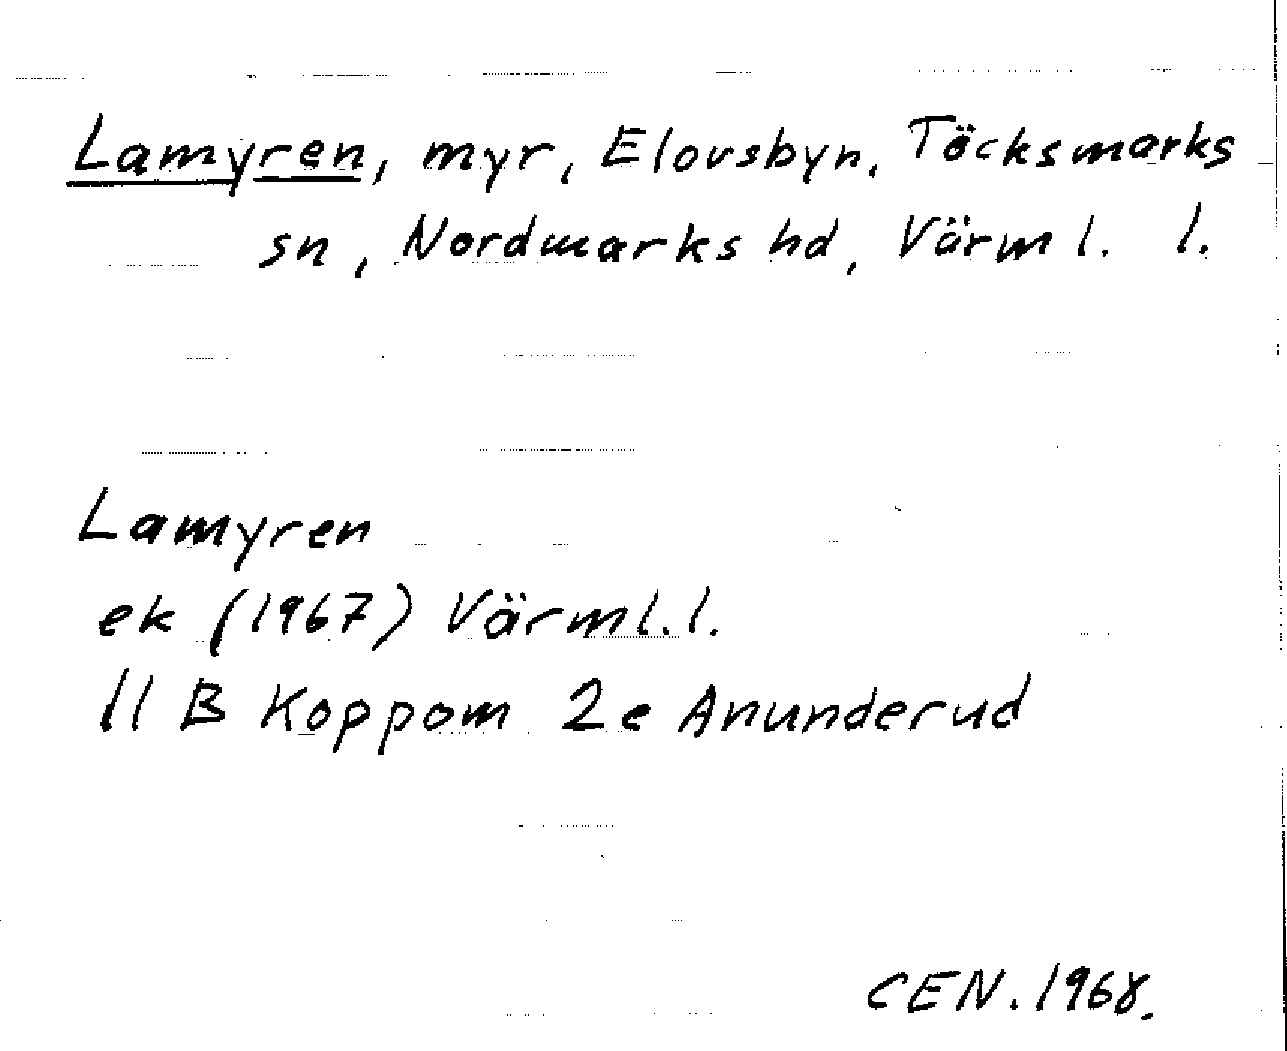 Lamyren, myr, Elovsbyn, Töcksmarks
sn, Nordmarks hd, Värml. l.
Lamyren
ek (1967) Värml. l.
11 B Koppom 2e Anunderud
CEN. 1968.